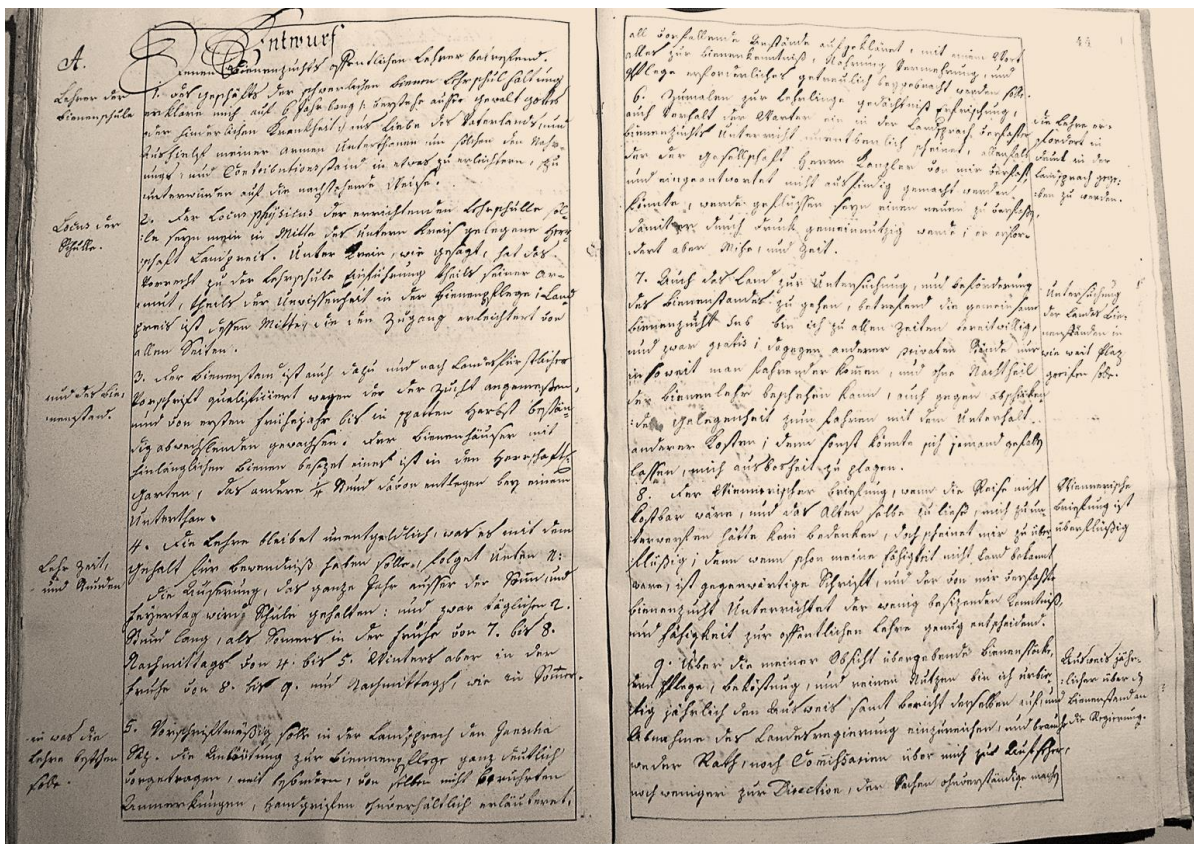 Entwurf
A.
Einen Bienenzuchts öffentlichen Lehrer betreffend.
Lehrer der
Bienenschule
1. das Geschäft der schweren Bienen Lehrschul Haltung
erkläre mich auf 6 Jahr lang
der hinderlichen Krankheit aus Liebe des Vaterlands, und
meiner armen Unterthanen um solchen den
und Contributionsstand in etwas zu erleichtern, zu
unterwinden auf die nachstehende Weise.
Locus der
Schulle.
2. Der Locus physicus der errichtenden Lehrschulle sol-
le seyn mein in Mitte des Untern Kreis gelegene Herr-
schaft Landpreis. Unter Krein, wie gesagt, hat das
Vorrecht zu der Lehrschule Einführung theils seiner Ar-
muth, theils der Unwissenheit in der Bienenpflege; Land
preis ist dessen Mitte, die den Zugang erleichtert von
allen Seiten.
und des Bie-
nenstand.
3. Der Bienenstand ist auch dazu und nach Landesfürstlicher
Vorschrift qualificiert wegen der der Zucht angemessen,
und von ersten Frühejahr bis in spatten Herbst bestän-
dig abwechslenden gewachsen. Der Bienenhäuser mit
hinlänglichen Bienen besizet eines ist in den Herrschafts
Garten, das andere 1/4 Stund davon entlegen bey einem
Unterthan.
Lehr Zeit,
und Stunden
4. Die Lehre bleibet unentgeldlich, was es mit dem
Gehalt für bewendniß haben solle, folget unten
die Äußerung, das ganze Jahr ausser der Sonn und
Feyertag wird Schule gehalten: und zwar täglichen 2.
Stund lang, als Somers in der Frühe von 7. bis 8.
Nachmittags von 4. bis 5. Winters aber in der
Frühe von 8. bis 9. und Nachmittags, wie im Somer.
in was die
Lehre bestehen
solle.
5. Vorschriftmässig solle in der Landsprach den Janscha
die Anleitung zur Bienenpflege ganz deutlich
vorgetragen, mit besondern, von selben nicht berührten
Anmerkungen, Handgriffen ohnverhältlich erläuteret,
44
all vorfallende Umstände aufgekläret, mit einem Wort
alles zur Bienenkenntniß, Nahrung Vermehrung, und
Pflege erforderliches getreulich beygebracht werden solle.
die Lehre er-
fordert in
Druck in der
Landsprach gege-
ben zu werden.
6. Zumalen zur Lehrlinge gedächtniß erfrischung,
auch Vorhalt der Wörter ein in der Landsprach verfaßter
Bienenzuchts Unterricht unentberlich scheinet, allenfalls
der der Gesellschaft Herrn Kanzler von mir verfaßt
und eingeantwortet nicht ausfindig gemacht werden
könnte, werde geflissen seyn einen neuen zu verfassen,
damit er durch Druck gemeinnützig werde; er erfor-
dert aber Mühe, und Zeit.
Untersuchung
der Landes Bie-
nenständen in
wie weit Plaz
greifen solle.
7. Auch das Land zur Untersuchung, und Beförderung
des Bienenstandes zu gehen, betrefend die gemeinsame
Bienenzucht des bin ich zu allen Zeiten bereitwillig
und zwar gratis; dagegen anderer privaten Stände nur
in soweit man fahrender komen, und ohne Nachtheil
der Bienenlehr beschehen kann, auch gegen abschicken-
der Gelegenheit zum fahren mit dem Unterhalt
anderer Kosten; dem sonst könnte sich jemand gefallen
lassen, mich aus bosheit zu plagen.
Wiennerische
Priefung ist
überflüssig
8. Der Wiennerischer Priefung, wenn die Reise nicht
kostbar wäre, und das Alter solbe zu ließe, mich zu un-
terwerfen hätte kein bedenken, doch scheinet mir zu über-
flüssig; denn wenn schon meine Fähigkeit nicht Land bekannt
wäre, ist gegenwärtige Schrift, und der von mir verfaßte
Bienenzucht Unterrichtet der wenig besizenden Kenntniß,
und Fähigkeit zur öffentlichen Lehre genug entscheidend.
Ausweis jähr-
licher über den
Bienenstand an
die Regierung.
9. Über die meiner Obsicht übergebende Bienenstöcke,
den Pflege, beköstung, und reinen Nutzen bin ich erbie-
tig jährlich den Ausweis samt bericht derselben auf, und
Abnahme des Landesregierung einzureichen, und brauch
weder Rath, noch Commissarien über mich zur Aufseher,
noch weniger zur Direction, der Sachen ohnverständige